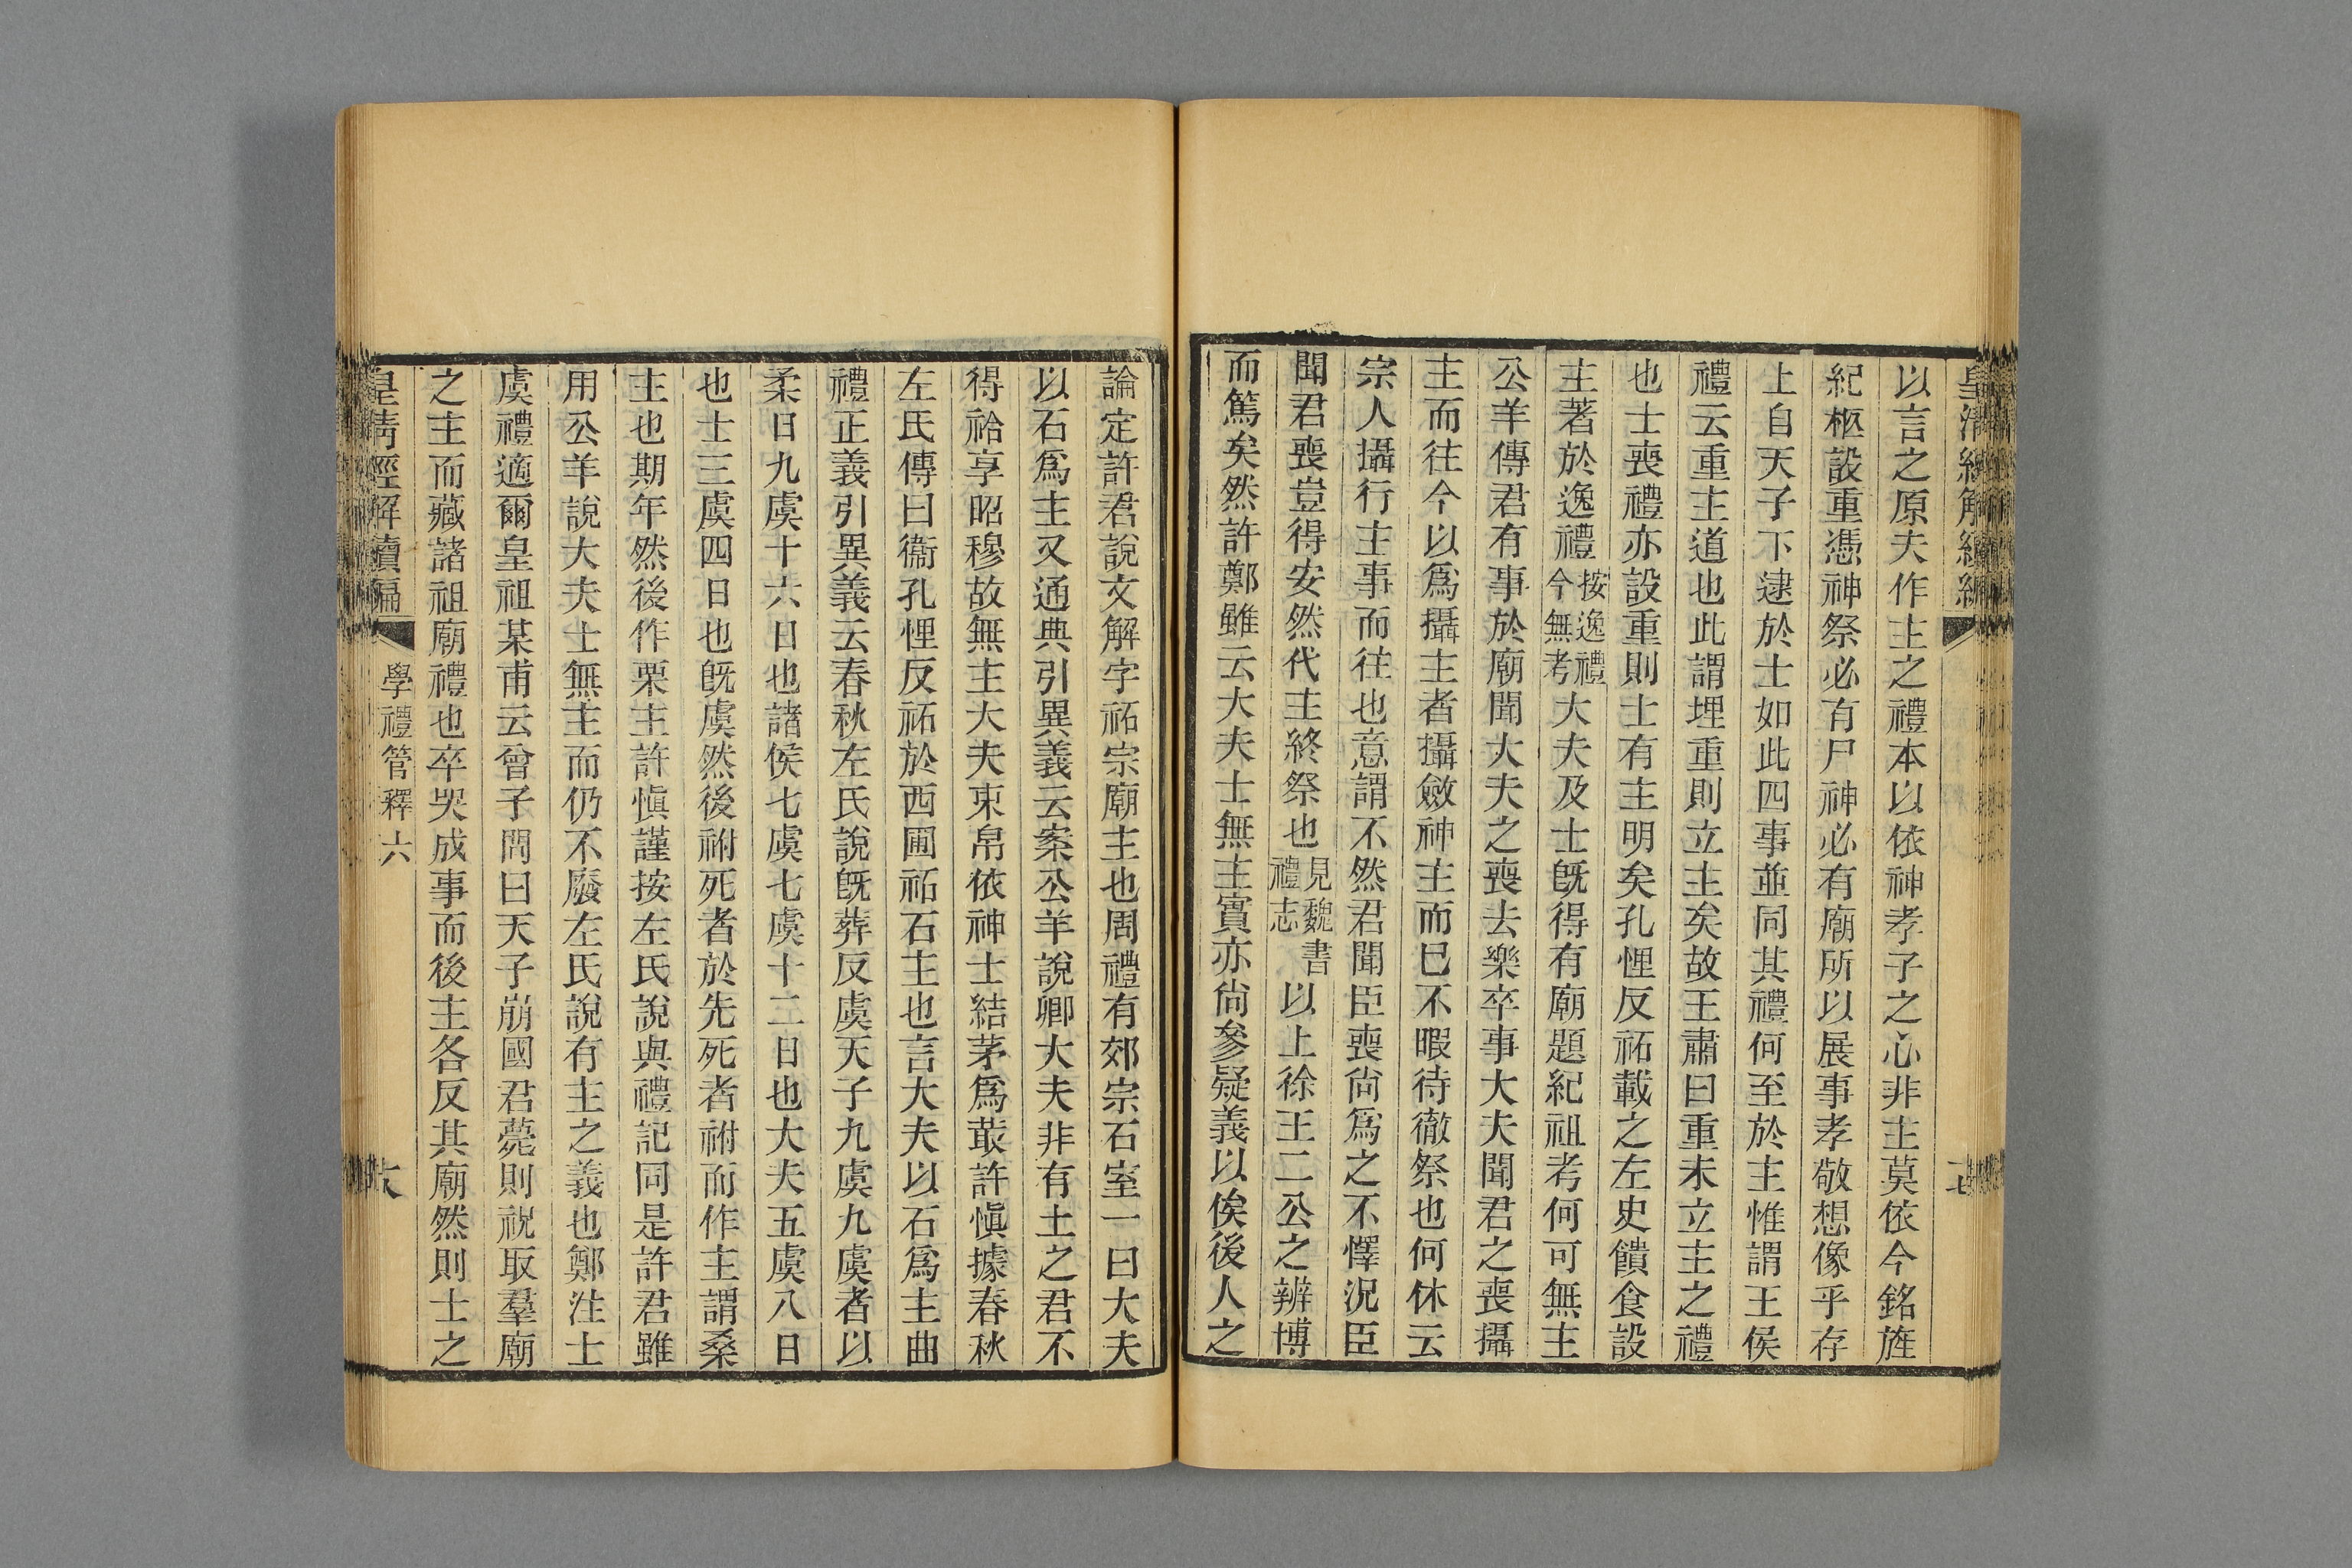 以言之原夫作主之禮本以依神孝子之心非主莫依今銘旌
紀柩設重憑神祭必有尸神必有廟所以展事孝敬想像乎存
上自天子下逮於士如此四事並同其禮何至於主惟謂王侯
禮云重主道也此謂埋重則立主矣故王肅曰重未立主之禮
也士喪禮亦設重則士有主明矣孔悝反祏載之左史饋食設
主著於逸禮按逸禮今無考大夫及士旣得有廟題紀祖考何可無主
公羊傳君有事於廟聞大夫之喪去樂卒事大夫聞君之喪攝
主而往今以爲攝主者攝斂神主而巳不暇待徹祭也何休云
宗人攝行主事而往也意謂不然君聞臣喪尙爲之不懌況臣
聞君喪豈得安然代主終祭也見魏書禮志以上徐王二公之辨博
而篤矣然許鄭雖云大夫士無主實亦尙參疑義以俟後人之
論定許君說文解字祏宗廟主也周禮有郊宗石室一曰大夫
以石爲主又通典引異義云案公羊說卿大夫非有土之君不
得祫享昭穆故無主大夫束帛依神士結茅爲菆許愼據春秋
左氏傳曰衞孔悝反祏於西圃祏石主也言大夫以石爲主曲
禮正義引異義云春秋左氏說旣葬反虞天子九虞九虞者以
柔日九虞十六日也諸侯七虞七虞十二日也大夫五虞八日
也士三虞四日也旣虞然後祔死者於先死者祔而作主謂桑
主也期年然後作栗主許愼謹按左氏說與禮記同是許君雖
用公羊說大夫士無主而仍不廢左氏說有主之義也鄭注士
虞禮適爾皇祖某甫云曾子問曰天子崩國君薨則祝取羣廟
之主而藏諸祖廟禮也卒哭成事而後主各反其廟然則士之
皇清經解續編 學禮管釋六